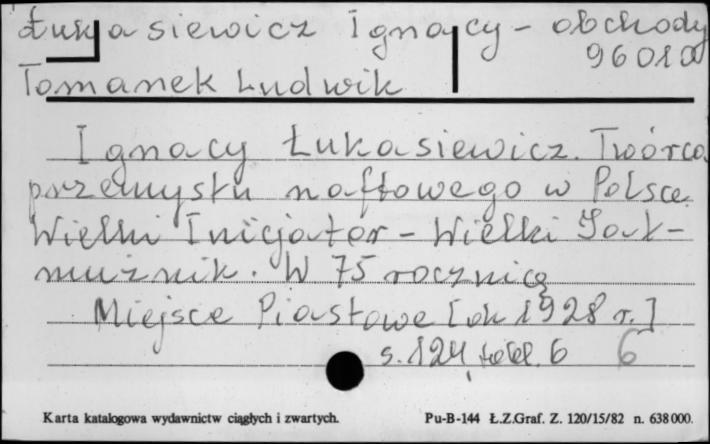 Łukasiewicz Ignacy - obchody
96010
Tomanek Ludwik
Ignacy Łukasiewicz. Twórca
przemysłu naftowego w Polsce.
Wielki Inicjator - Wielki Jał-
mużnik. W 75 rocznicę
Miejsce Piastowe [ok 1928 r.]
s. 124, tabl. 6 6
Karta katalogowa wydawnictw ciągłych i zwartych. Pu-B-144 Ł.Z.Graf. Z. 120/15/82 n. 638000.